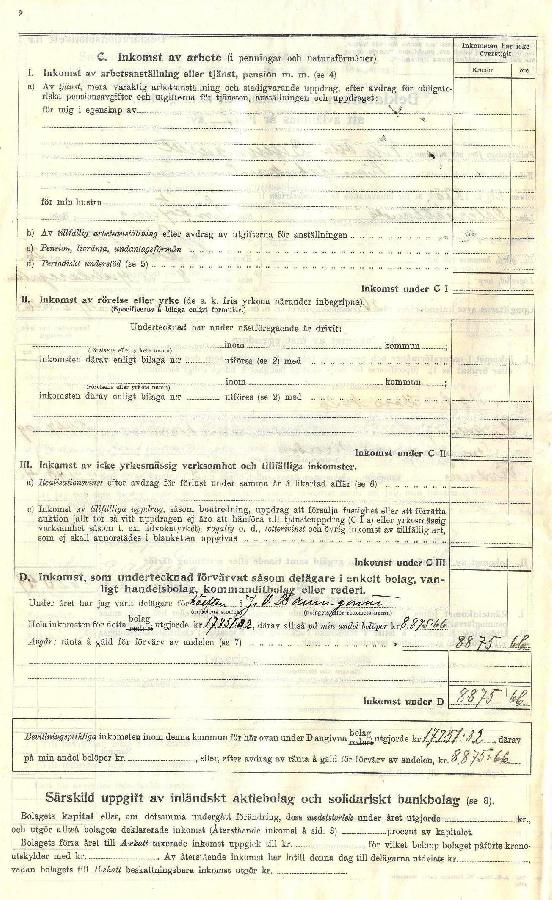 Inkomsten har icke
överstigit
C. Inkomst av arbete (i penningar och naturaförmåner)
Kronor
öre
I. Inkomst av arbetsanställning eller tjänst, pension m. m. (se 4)
a) Av tjänst, mera varaktig arbetsanställning och stadigvarande uppdrag, efter avdrag för obligato-
riskt pensionsavgifter och utgifterna för tjänsten, anställningen och uppdraget:
för mig i egenskap av
för min hustru
b) Av tillfällig arbetsanställning efter avdrag av utgifterna för anställningen
c) Pension, livränta, undantagsförmån
d) Periodiskt understöd (se 5)
Inkomst under C I
II. Inkomst av rörelse eller yrke (de s. k. fria yrkena härunder inbegripna).
(Specificeras å bilaga enligt formulär.)
Undertecknad har under nästföregående år drivit:
inom kommun ;
(rörelsens eller yrkets namn)
inkomsten därav enligt bilaga n:r utföres (se 2) med
inom kommun ;
(rörelsens eller yrkets namn)
inkomsten därav enligt bilaga n:r utföres (se 2) med
Inkomst under C II
III. Inkomst av icke yrkesmässig verksamhet och tillfälliga inkomster.
a) Realisationsvinst efter avdrag för förlust under samma år å likartad affär (se 6)
c) Inkomst av tillfälliga uppdrag, såsom boutredning, uppdrag att försälja fastighet eller att förrätta
auktion (allt för så vitt uppdragen ej äro att hänföra till tjänsteuppdrag (C I a) eller yrkesmässig
verksamhet såsom t. ex. advokatyrket), royalty o. d., lotterivinst och övrig inkomst av tillfällig art,
som ej skall annorstädes i blanketten uppgivas
Inkomst under C III
D. Inkomst, som undertecknad förvärvat såsom delägare i enkelt bolag, van-
ligt handelsbolag, kommanditbolag eller rederi.
Under året har jag varit delägare i
Hela inkomsten för detta bolag utgjorde kr. 17751:32, därav alltså på min andel belöper kr. 8875:66
rederi
Avgår: ränta å gäld för förvärv av andelen (se 7) 8875 66
Inkomst under D 8875 66
Bevillningspliktiga inkomsten inom denna kommun för här ovan under D angivna bolag utgjorde kr. 17751:32, därav
rederi
på min andel belöper kr. , eller, efter avdrag av ränta å gäld för förvärv av andelen, kr. 8875:66
Särskild uppgift av inländskt aktiebolag och solidariskt bankbolag (se 8).
Bolagets kapital eller, om detsamma undergått förändring, dess medelstorlek under året utgjorde kr.,
och utgör alltså bolagets deklarerade inkomst (Återstående inkomst å sid. 3) procent av kapitalet.
Bolagets förra året till Årskatt taxerade inkomst uppgick till kr. för vilket belopp bolaget påförts krono-
utskylder med kr. Av återstående inkomst har intill denna dag till delägarna utdelats kr.
medan bolagets till Årskatt beskattningsbara inkomst utgör kr.